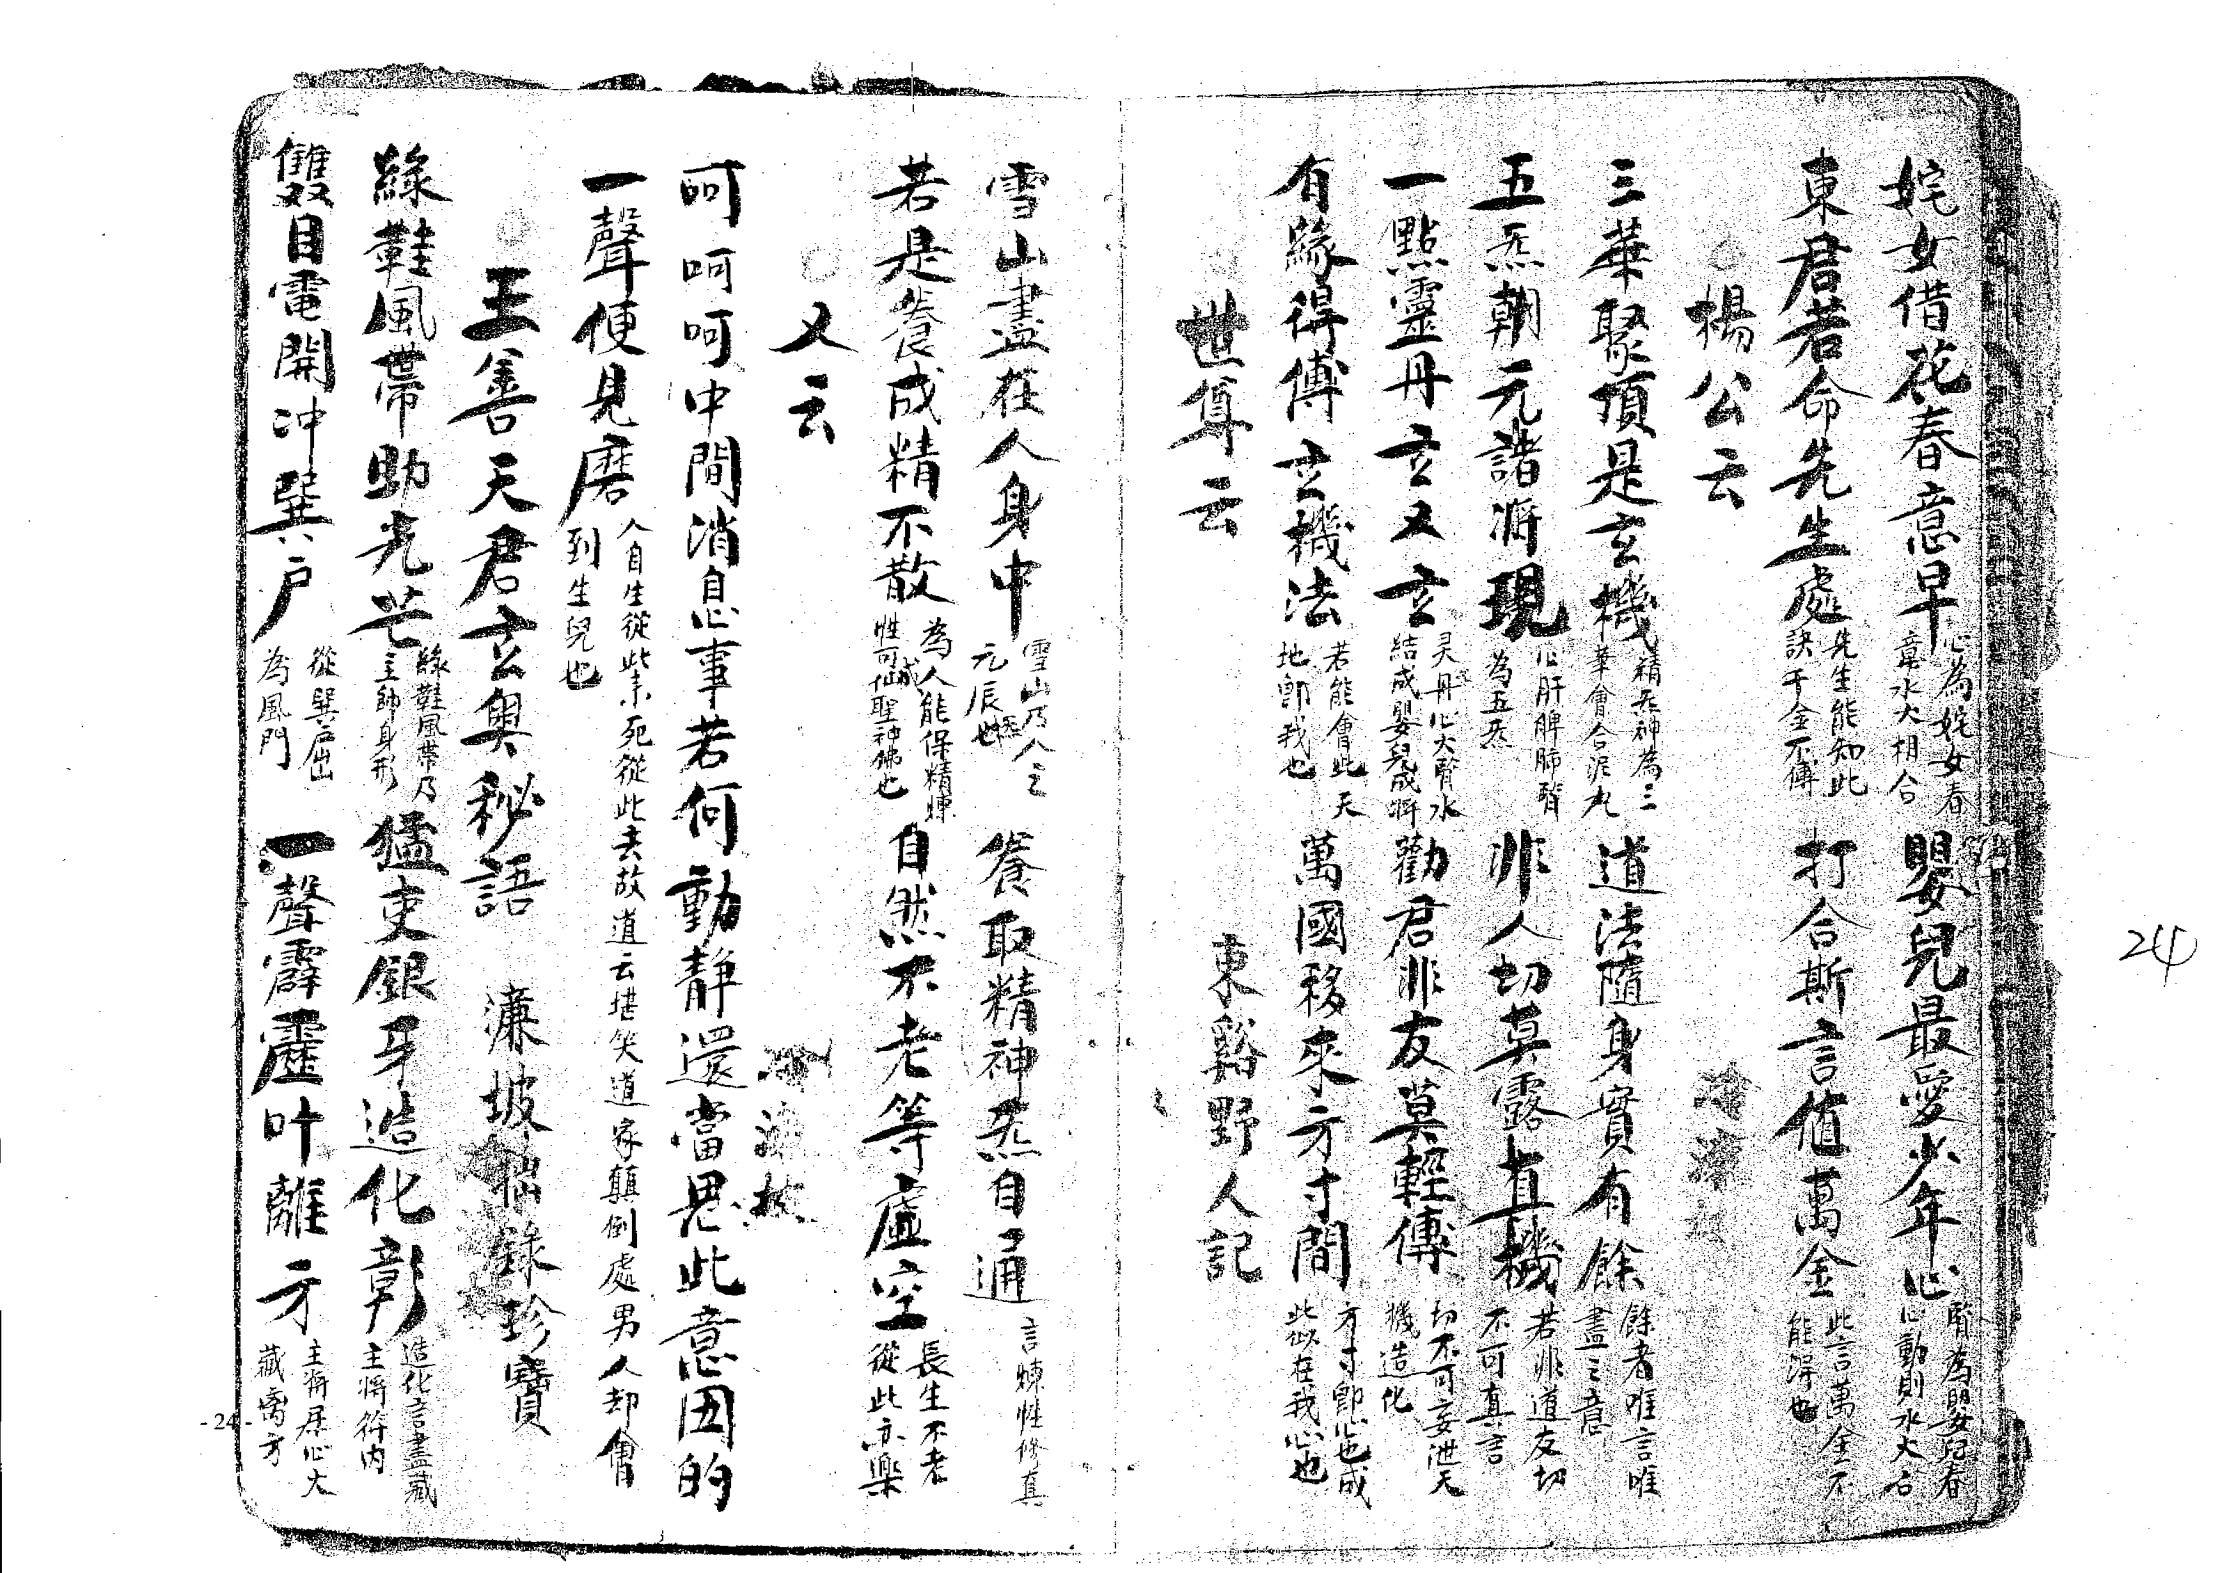 姹女借花春意早 心為姹女春意水火相合 嬰兒最愛少年心 腎為嬰兒春心動則水火合
東君若命先生處 先生能知此訣千金不傳 打合斯言值萬金 此言萬金不能得也
楊公云
三華聚頂是玄機 精炁神為三華會合泥丸 道法隨身實有餘 餘者唯言唯盡之意
五炁朝元諸將現 心肝脾肺腎為五炁 非人切莫露真機 若非道友切不可真言
一點靈丹玄又玄 灵丹心火腎水結成嬰兒成將 勸君非友莫輕傳 切不可妄泄天機造化
有緣得傳玄機法 若能會此天地即我也 萬國移來方寸間 方寸即心也成此似在我心也
世尊云 東谿野人記
雪山盡在人身中 雪山乃人之元辰也 養取精神炁自通 言煉性修真
若是養成精不散 為人能保精煉性可成仙聖神佛也 自然不老等虛空 長生不老從此亦樂
又云
呵呵呵中間消息事若何動靜還當思此意因的
一聲便見磨 人自生從此來死從此去故道云堪笑道家顛倒處男人却會到生兒也
王善天君玄奧秘語 濂坡 錄珍寶
綠鞋風帶助光芒 綠鞋風帶乃主帥身形 猛吏銀牙造化彰 造化言盡藏主將符内
雙目電開冲巽户 從巽户出為風門 一聲霹靂叶離方 主將居心火藏离方
24
-24-